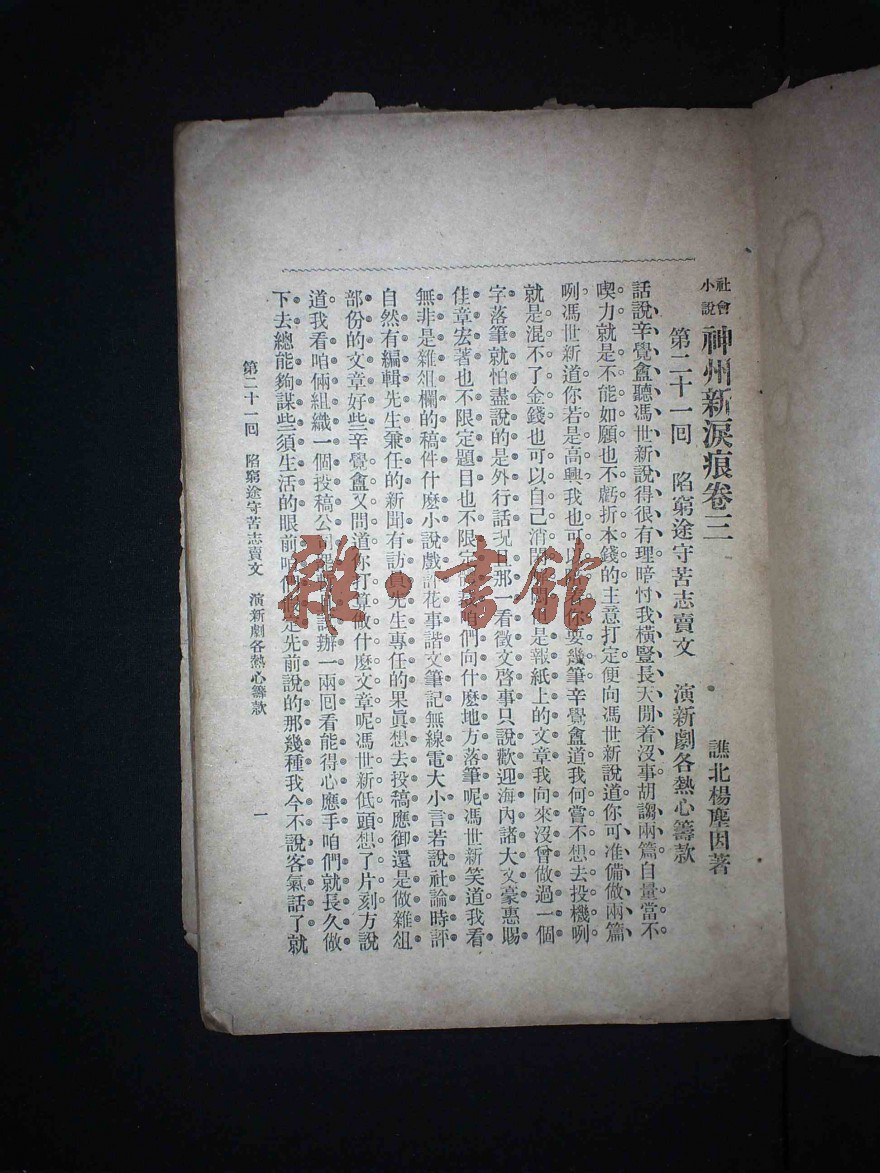 社會小說 神州新淚痕卷三
譙北楊塵因著
第二十一回 陷窮途守苦志賣文 演新劇各熱心籌款
話說辛覺盦聽馮世新說得很有理暗忖我橫豎長天閒着沒事胡謅兩篇自量當不
喫力就是不能如願也不虧折本錢的主意打定便向馮世新說道你可准備做兩篇
咧馮世新道你若是高興我也可以 要幾筆辛覺盦道我何嘗不想去投機咧
就是混不了金錢也可以自己消閒 是報紙上的文章我向來沒曾做過一個
字落筆就怕盡說的是外行話 那一看徵文啓事只說歡迎海內諸大文豪惠賜
佳章宏著也不限定題目也不限定 咱們向什麼地方落筆呢馮世新笑道我看
無非是雜俎欄的稿件什麼小說戲 花事諧文筆記無線電大小言若說社論時評
自然有編輯先生兼任的新聞有訪員先生專任的果眞想去投稿應御還是做雜俎
部份的文章好些辛覺盦又問道你打算做什麼文章呢馮世新低頭想了片刻方說
道我看咱倆組織一個投稿公司 試辦一兩回看能得心應手咱們就長久做
下去總能夠謀些須生活的眼前咱 是先前說的那幾種我今不說客氣話了就
第二十一回 陷窮途守苦志賣文 演新劇各熱心籌款 一
雜·書館